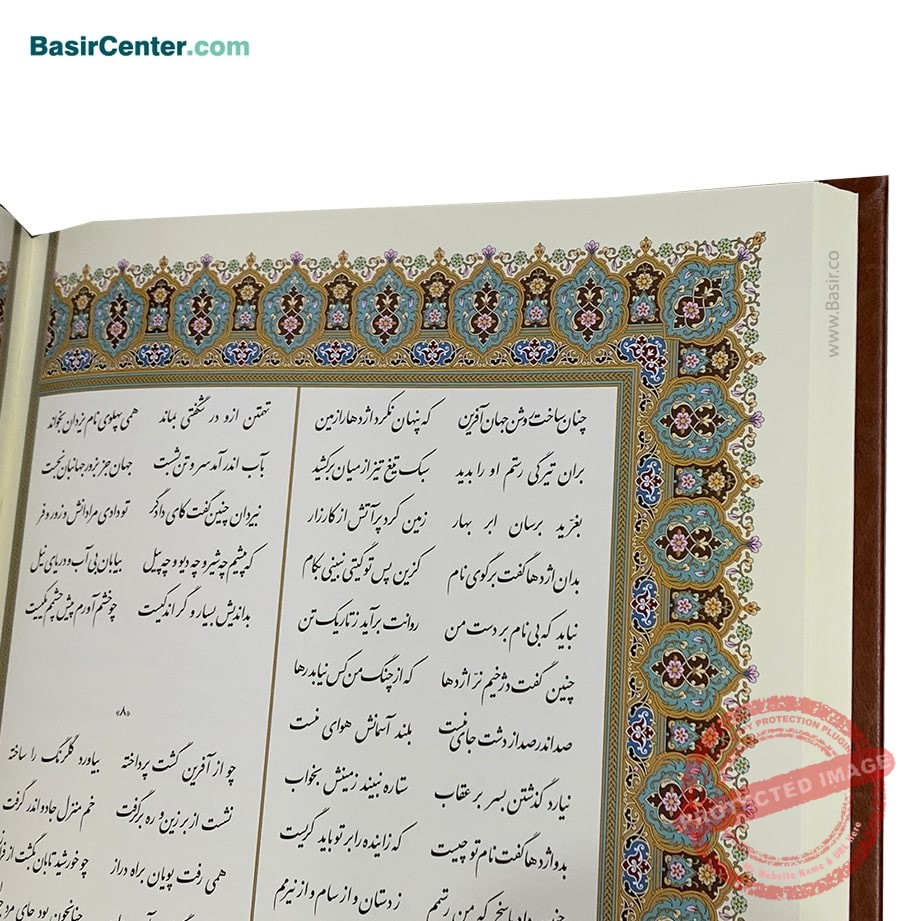 BasirCenter.com
www.Basir.co
چنان ساخت روشن جهان آفرین که پنهان نکرد اژدها را زمین
بران تیرگی رستم او را بدید سبک تیغ تیز از میان برکشید
بغرّید برسان ابر بهار زمین کرد پر آتش از کارزار
بدان اژدها گفت برگوی نام کزین پس تو گیتی نبینی بکام
نباید که بی نام بر دست من روانت برآید ز تاریک تن
چنین گفت دژخیم نر اژدها که از چنگ من کس نیابد رها
صد اندر صد از دشت جای منست بلند آسمانش هوای منست
نیارد گذشتن بسر بر عقاب ستاره نبیند زمینش بخواب
بدو اژدها گفت نام تو چیست که زاینده را بر تو باید گریست
چنین داد پاسخ که من رستمم ز دستان و از سام و از نیرمم
تهمتن ازو در شگفتی بماند همی پهلوی نام یزدان بخواند
بآب اندر آمد سر و تن بشست جهان جز بزور جهانبان نجست
بیزدان چنین گفت کای دادگر تو دادی مرا دانش و زور و فر
که پیشم چه شیر و چه دیو و چه پیل بیابان بی آب و دریای نیل
بداندیش بسیار و گر اندکیست چو خشم آورم پیش چشمم یکیست
«۸»
چو از آفرین گشت پرداخته بیاورد گلرنگ را ساخته
نشست از بر زین و ره برگرفت خم منزل جادو اندر گرفت
همی رفت پویان براه دراز چو خورشید تابان بگشت از
چنانچون بود جای
PROTECTION PLUGIN
PROTECTED IMAGE
Website Name & URL here